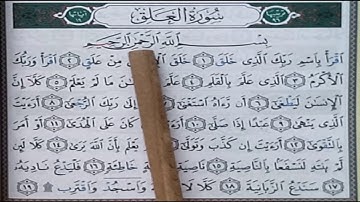 سُورَةُ الْعَلَقِ
بِسْمِ اللَّهِ الرَّحْمَٰنِ الرَّحِيمِ
اقْرَأْ بِاسْمِ رَبِّكَ الَّذِي خَلَقَ ١ خَلَقَ مِنْ عَلَقٍ ٢ اقْرَأْ وَرَبُّكَ
الْأَكْرَمُ ٣ الَّذِي عَلَّمَ بِالْقَلَمِ ٤ مَا لَمْ يَعْلَمْ ٥ كَلَّا إِنَّ
الْإِنسَٰنَ لَيَطْغَىٰ ٦ أَن رَّآهُ اسْتَغْنَىٰ ٧ إِلَىٰ رَبِّكَ الرُّجْعَىٰ ٨ أَرَأَيْتَ
كَانَ عَلَى الْهُدَىٰ ١١ أَوْ أَمَرَ
بِالتَّقْوَىٰ ١٢ أَرَأَيْتَ إِن كَذَّبَ وَتَوَلَّىٰ يَعْلَم بِأَنَّ اللَّهَ يَرَىٰ ١٤ كَلَّا لَئِن
لَّمْ يَنتَهِ لَنَسْفَعًا بِالنَّاصِيَةِ ١٥ نَاصِيَةٍ خَاطِئَةٍ ١٦ فَلْيَدْعُ نَادِيَهُ
١٧ سَنَدْعُ الزَّبَانِيَةَ ١٨ كَلَّا لَا وَاسْجُدْ وَاقْتَرِب ۩ ١٩